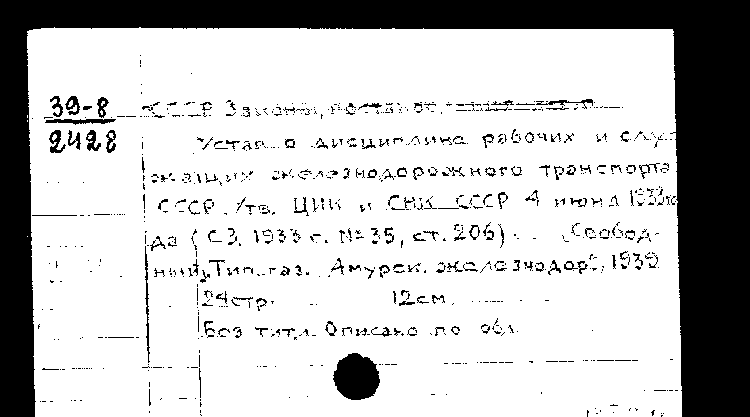 39-8
2428
СССР Законы, постанов.
Устав о дисциплине рабочих и слу-
жащих железнодорожного транспорта
СССР. Утв. ЦИК и СНК СССР 4 июня 1933 го
да (СЗ. 1933 г. № 35, ст. 206). „Свобод-
ный", Тип. газ. „Амурск. железнодор.", 1939
24 стр. 12 см.
Без титл. Описано по обл.